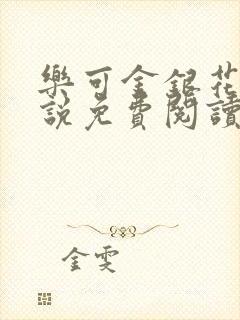 樂可金銀花
說免費閱讀
金雯